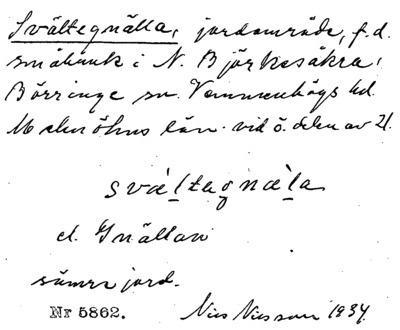 Svältegnälla, jordområde, f.d.
småbruk i N. Björkesåkra,
Börringe sn. Vemmenhögs hd.
Malmöhus län. vid ö. delen av 21.
svältagnäla
el. Gnällan
sämre jord.
Nr 5862. Nils Nilsson 1934